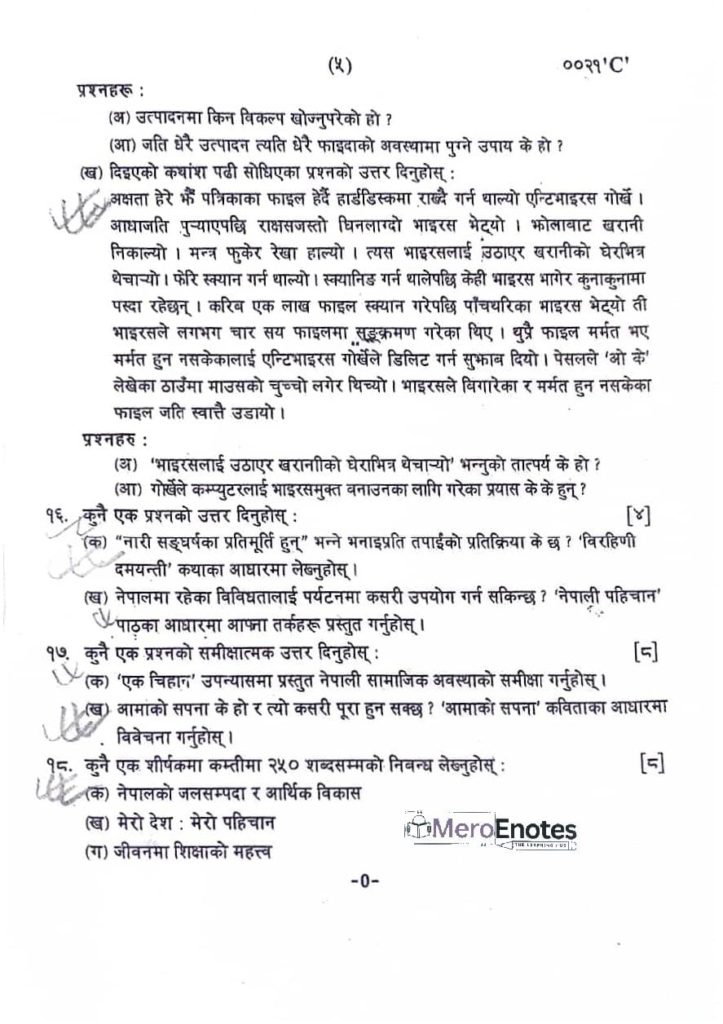 (५) ००२१'C'
प्रश्नहरू :
(अ) उत्पादनमा किन विकल्प खोज्नुपरेको हो ?
(आ) जति धेरै उत्पादन त्यति धेरै फाइदाको अवस्थामा पुग्ने उपाय के हो ?
(ख) दिइएको कथांश पढी सोधिएका प्रश्नको उत्तर दिनुहोस् :
अक्षता हेरे झैँ पत्रिकाका फाइल हेर्दै हार्डडिस्कमा राख्दै गर्न थाल्यो एन्टिभाइरस गोर्खे ।
आधाजति पुर्‍याएपछि राक्षसजस्तो घिनलाग्दो भाइरस भेट्यो । झोलाबाट खरानी
निकाल्यो । मन्त्र फुकेर रेखा हाल्यो । त्यस भाइरसलाई उठाएर खरानीको घेरभित्र
थेचार्‍यो। फेरि स्क्यान गर्न थाल्यो। स्क्यानिङ गर्न थालेपछि केही भाइरस भागेर कुनाकुनामा
पस्दा रहेछन् । करिब एक लाख फाइल स्क्यान गरेपछि पाँचथरिका भाइरस भेट्यो ती
भाइरसले लगभग चार सय फाइलमा सङ्क्रमण गरेका थिए । थुप्रै फाइल मर्मत भए
मर्मत हुन नसकेकालाई एन्टिभाइरस गोर्खेले डिलिट गर्न सुझाब दियो। पेसलले 'ओ के'
लेखेका ठाउँमा माउसको चुच्चो लगेर थिच्यो। भाइरसले बिगारेका र मर्मत हुन नसकेका
फाइल जति स्वात्तै उडायो ।
प्रश्नहरु :
(अ) 'भाइरसलाई उठाएर खरानीको घेराभित्र थेचार्‍यो' भन्नुको तात्पर्य के हो ?
(आ) गोर्खेले कम्प्युटरलाई भाइरसमुक्त बनाउनका लागि गरेका प्रयास के के हुन् ?
१६. कुनै एक प्रश्नको उत्तर दिनुहोस् : [४]
(क) "नारी सङ्घर्षका प्रतिमूर्ति हुन्" भन्ने भनाइप्रति तपाईंको प्रतिक्रिया के छ ? 'विरहिणी
दमयन्ती' कथाका आधारमा लेख्नुहोस् ।
(ख) नेपालमा रहेका विविधतालाई पर्यटनमा कसरी उपयोग गर्न सकिन्छ ? 'नेपाली पहिचान'
पाठका आधारमा आफ्ना तर्कहरू प्रस्तुत गर्नुहोस् ।
१७. कुनै एक प्रश्नको समीक्षात्मक उत्तर दिनुहोस् : [८]
(क) 'एक चिहान' उपन्यासमा प्रस्तुत नेपाली सामाजिक अवस्थाको समीक्षा गर्नुहोस् ।
(ख) आमाको सपना के हो र त्यो कसरी पूरा हुन सक्छ ? 'आमाको सपना' कविताका आधारमा
विवेचना गर्नुहोस् ।
१८. कुनै एक शीर्षकमा कम्तीमा २५० शब्दसम्मको निबन्ध लेख्नुहोस् : [८]
(क) नेपालको जलसम्पदा र आर्थिक विकास
(ख) मेरो देश : मेरो पहिचान
(ग) जीवनमा शिक्षाको महत्त्व
MeroEnotes
-0-